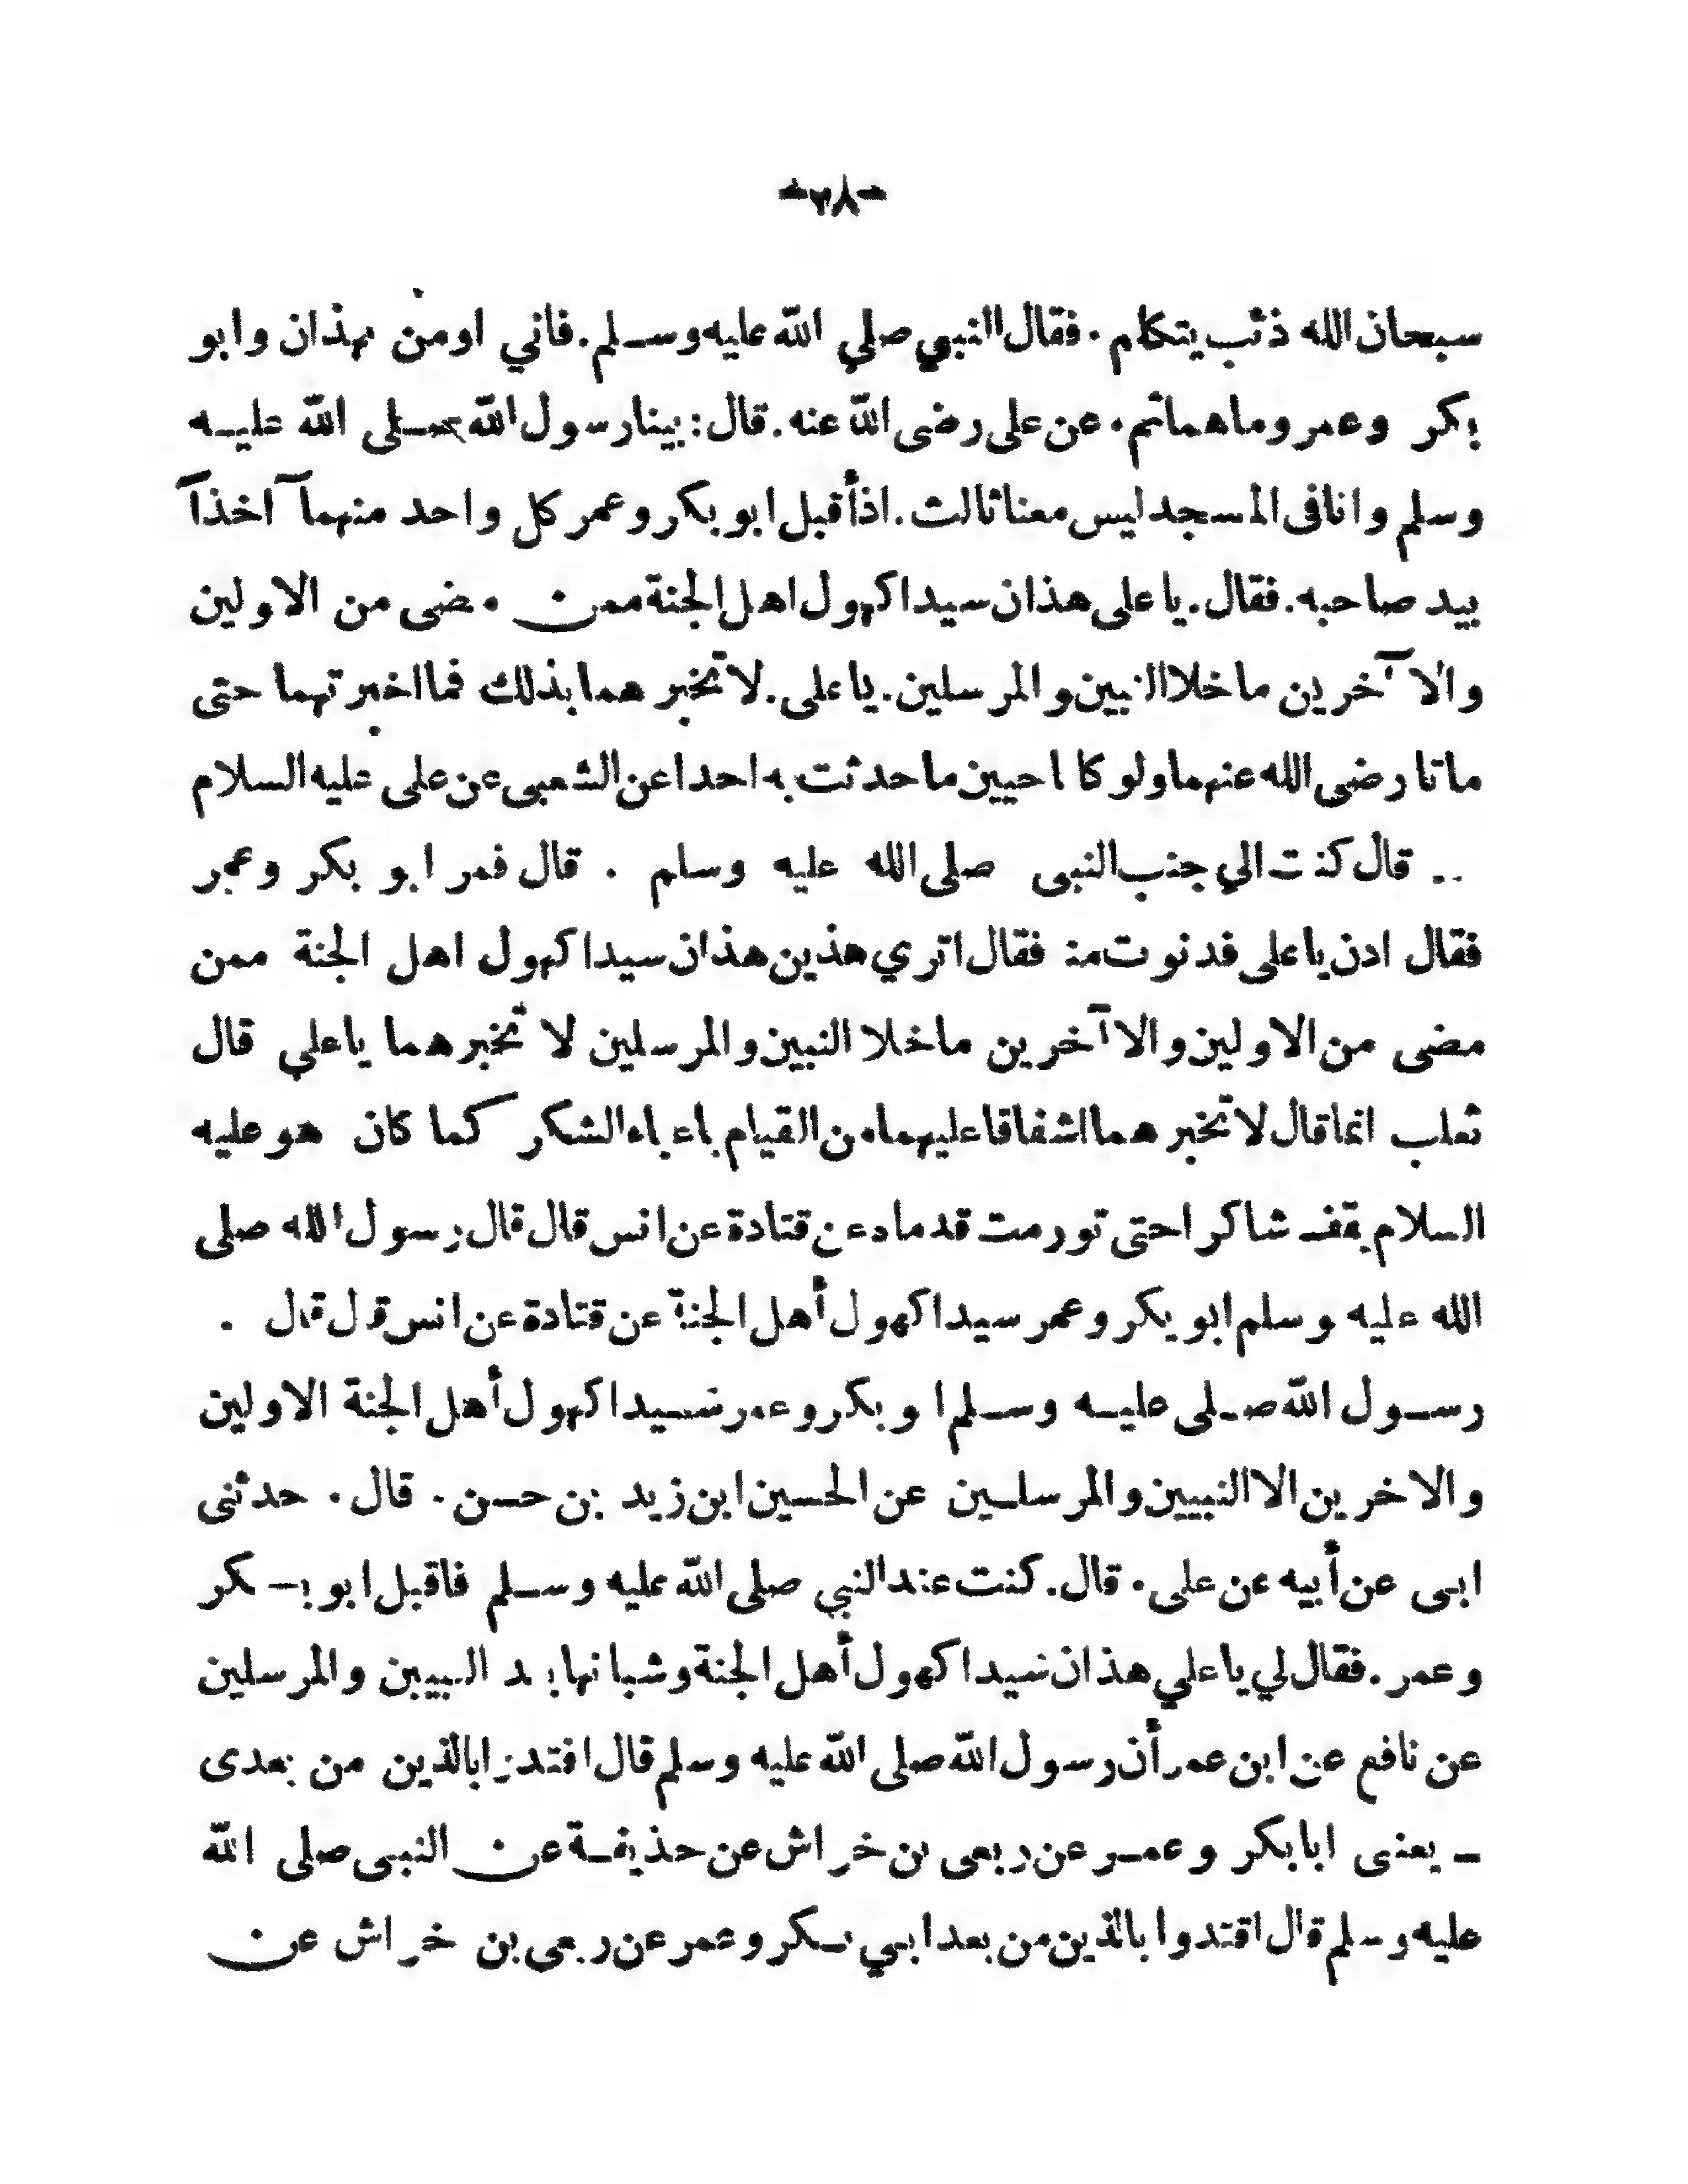 -٢٨-
سبحان الله ذئب يتكلم. فقال النبي صلي الله عليه وسلم. فاني اومن بهذان وابو
بكر وعمر وما هما ثم. عن على رضى الله عنه. قال: بينا رسول الله صلى الله عليه
وسلم وانا فى المسجد ليس معنا ثالث. اذ أقبل ابو بكر وعمر كل واحد منهما آخذاً
بيد صاحبه. فقال. يا على هذان سيدا كهول اهل الجنة ممن مضى من الاولين
والآخرين ما خلا النبيين والمرسلين. يا على. لا تخبر هما بذلك فما اخبرتهما حتى
ماتا رضى الله عنهما ولو كا احيين ما حدثت به احدا عن الشعبى عن على عليه السلام
.. قال كنت الي جنب النبى صلى الله عليه وسلم . قال فمر ابو بكر وعمر
فقال ادن يا على فدنوت منه فقال اتري هذين هذان سيدا كهول اهل الجنة ممن
مضى من الاولين والاآخرين ما خلا النبين والمرسلين لا تخبر هما يا علي قال
ثعلب انما قال لا تخبر هما اشفاقا عليهما من القيام باعباء الشكر كما كان هو عليه
السلام يقف شاكرا حتى تورمت قدماه عن قتادة عن انس قال قال رسول الله صلى
الله عليه وسلم ابو بكر وعمر سيدا كهول أهل الجنة عن قتادة عن انس قال قال .
رسول الله صلى عليه وسلم ا وبكر وعمر سيدا كهول أهل الجنة الاولين
والاخرين الا النبيين والمرسلين عن الحسين ابن زيد بن حسن. قال. حدثنى
ابى عن أبيه عن على. قال. كنت عند النبي صلى الله عليه وسلم فاقبل ابو بكر
وعمر. فقال لي يا علي هذان سيدا كهول أهل الجنة وشبانها بعد النبيين والمرسلين
عن نافع عن ابن عمر أن رسول الله صلى الله عليه وسلم قال اقتدوا بالذين من بعدى
ـ يعنى ابا بكر وعمر عن ربعى بن خراش عن حذيفة عن النبى صلى الله
عليه وسلم قال اقتدوا بالذين من بعد ابي بكر وعمر عن ربعى بن خراش عن